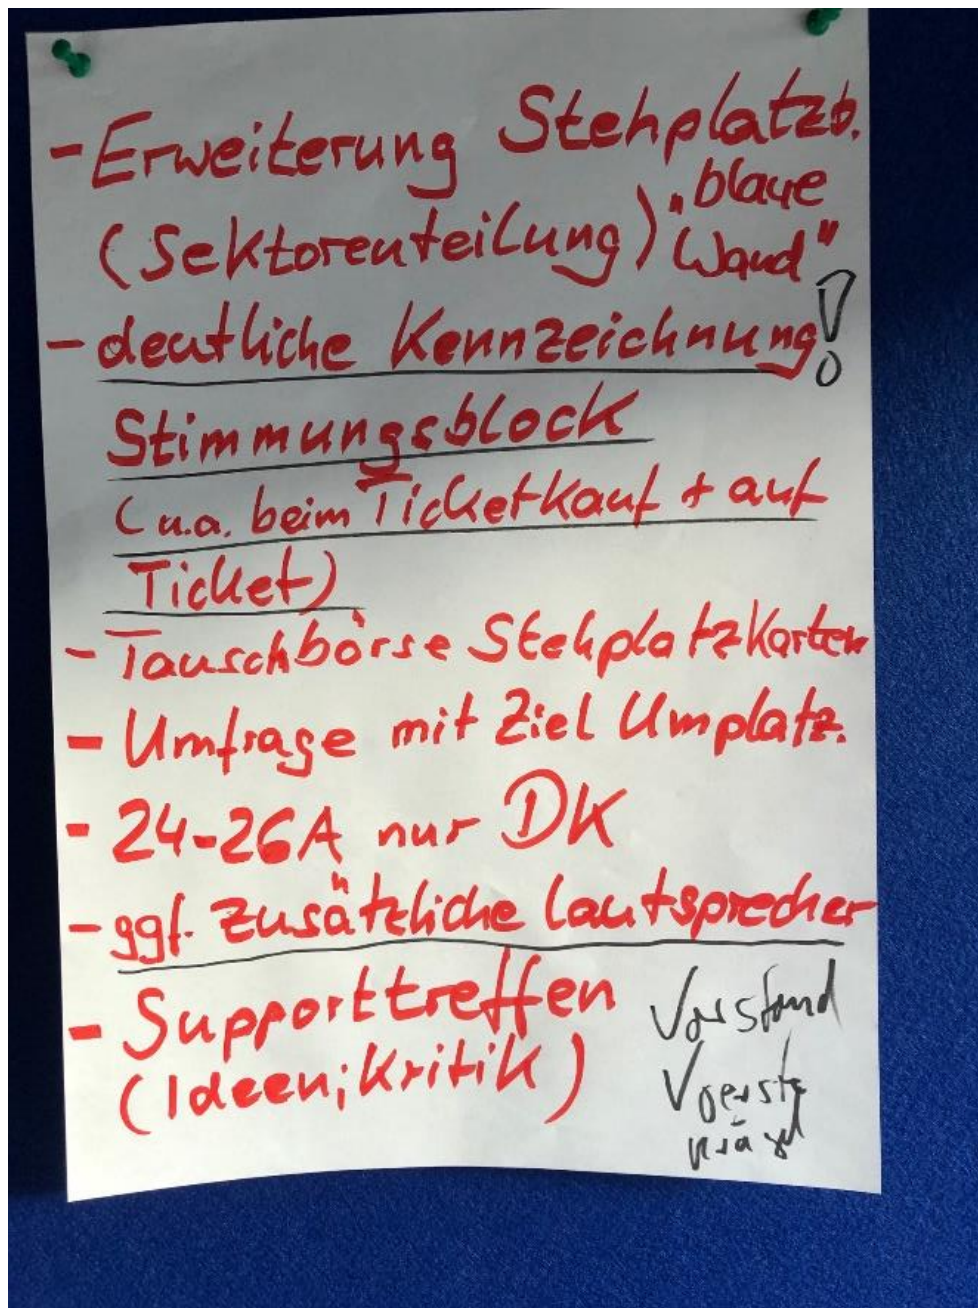 - Erweiterung Stehplatzb.
(Sektorenteilung) "blaue
Wand"
- deutliche Kennzeichnung!
Stimmungsblock
(u.a. beim Ticketkauf + auf
Ticket)
- Tauschbörse Stehplatzkarten
- Umfrage mit Ziel Umplatz.
- 24-26A nur DK
- ggf. zusätzliche Lautsprecher
- Supporttreffen
(Ideen; Kritik)
Vorstand